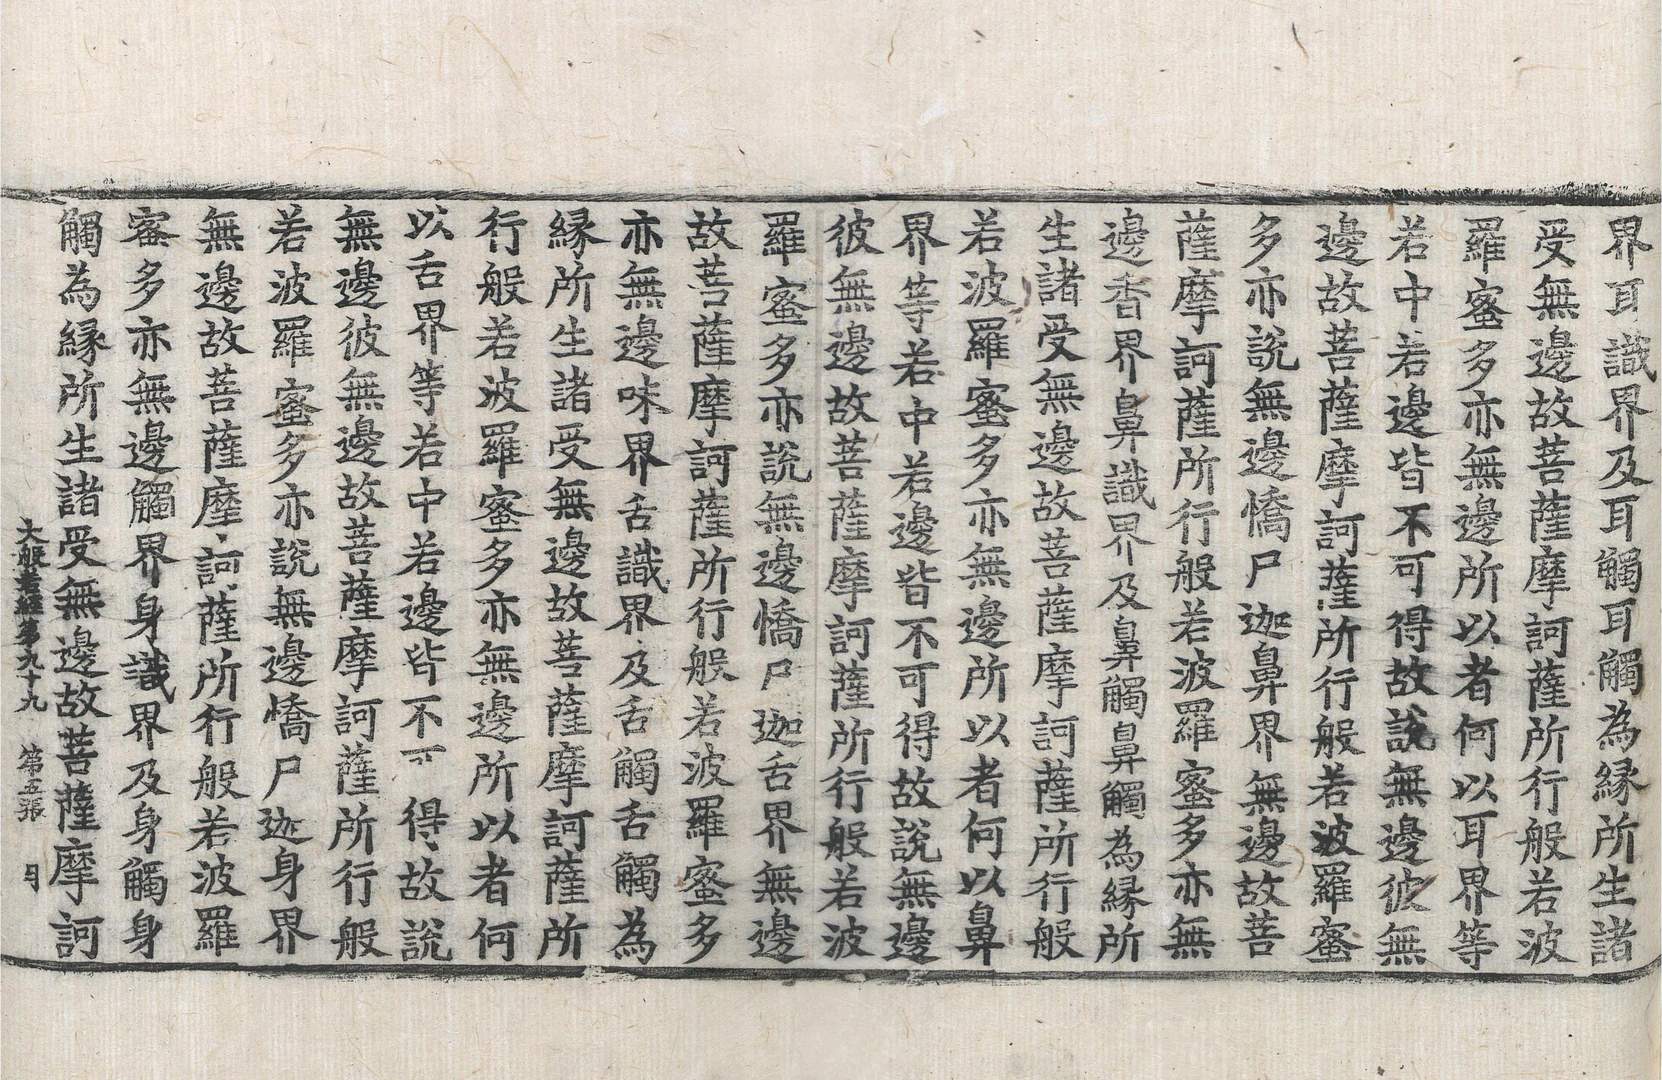 界耳識界及耳觸耳觸為緣所生諸
受無邊故菩薩摩訶薩所行般若波
羅蜜多亦無邊所以者何以耳界等
若中若邊皆不可得故說無邊彼無
邊故菩薩摩訶薩所行般若波羅蜜
多亦說無邊憍尸迦鼻界無邊故菩
薩摩訶薩所行般若波羅蜜多亦無
邊香界鼻識界及鼻觸鼻觸為緣所
生諸受無邊故菩薩摩訶薩所行般
若波羅蜜多亦無邊所以者何以鼻
界等若中若邊皆不可得故說無邊
彼無邊故菩薩摩訶薩所行般若波
羅蜜多亦說無邊憍尸迦舌界無邊
故菩薩摩訶薩所行般若波羅蜜多
亦無邊味界舌識界及舌觸舌觸為
緣所生諸受無邊故菩薩摩訶薩所
行般若波羅蜜多亦無邊所以者何
以舌界等若中若邊皆不可得故說
無邊彼無邊故菩薩摩訶薩所行般
若波羅蜜多亦說無邊憍尸迦身界
無邊故菩薩摩訶薩所行般若波羅
蜜多亦無邊觸界身識界及身觸身
觸為緣所生諸受無邊故菩薩摩訶
大般若經第九十九 第五張 月